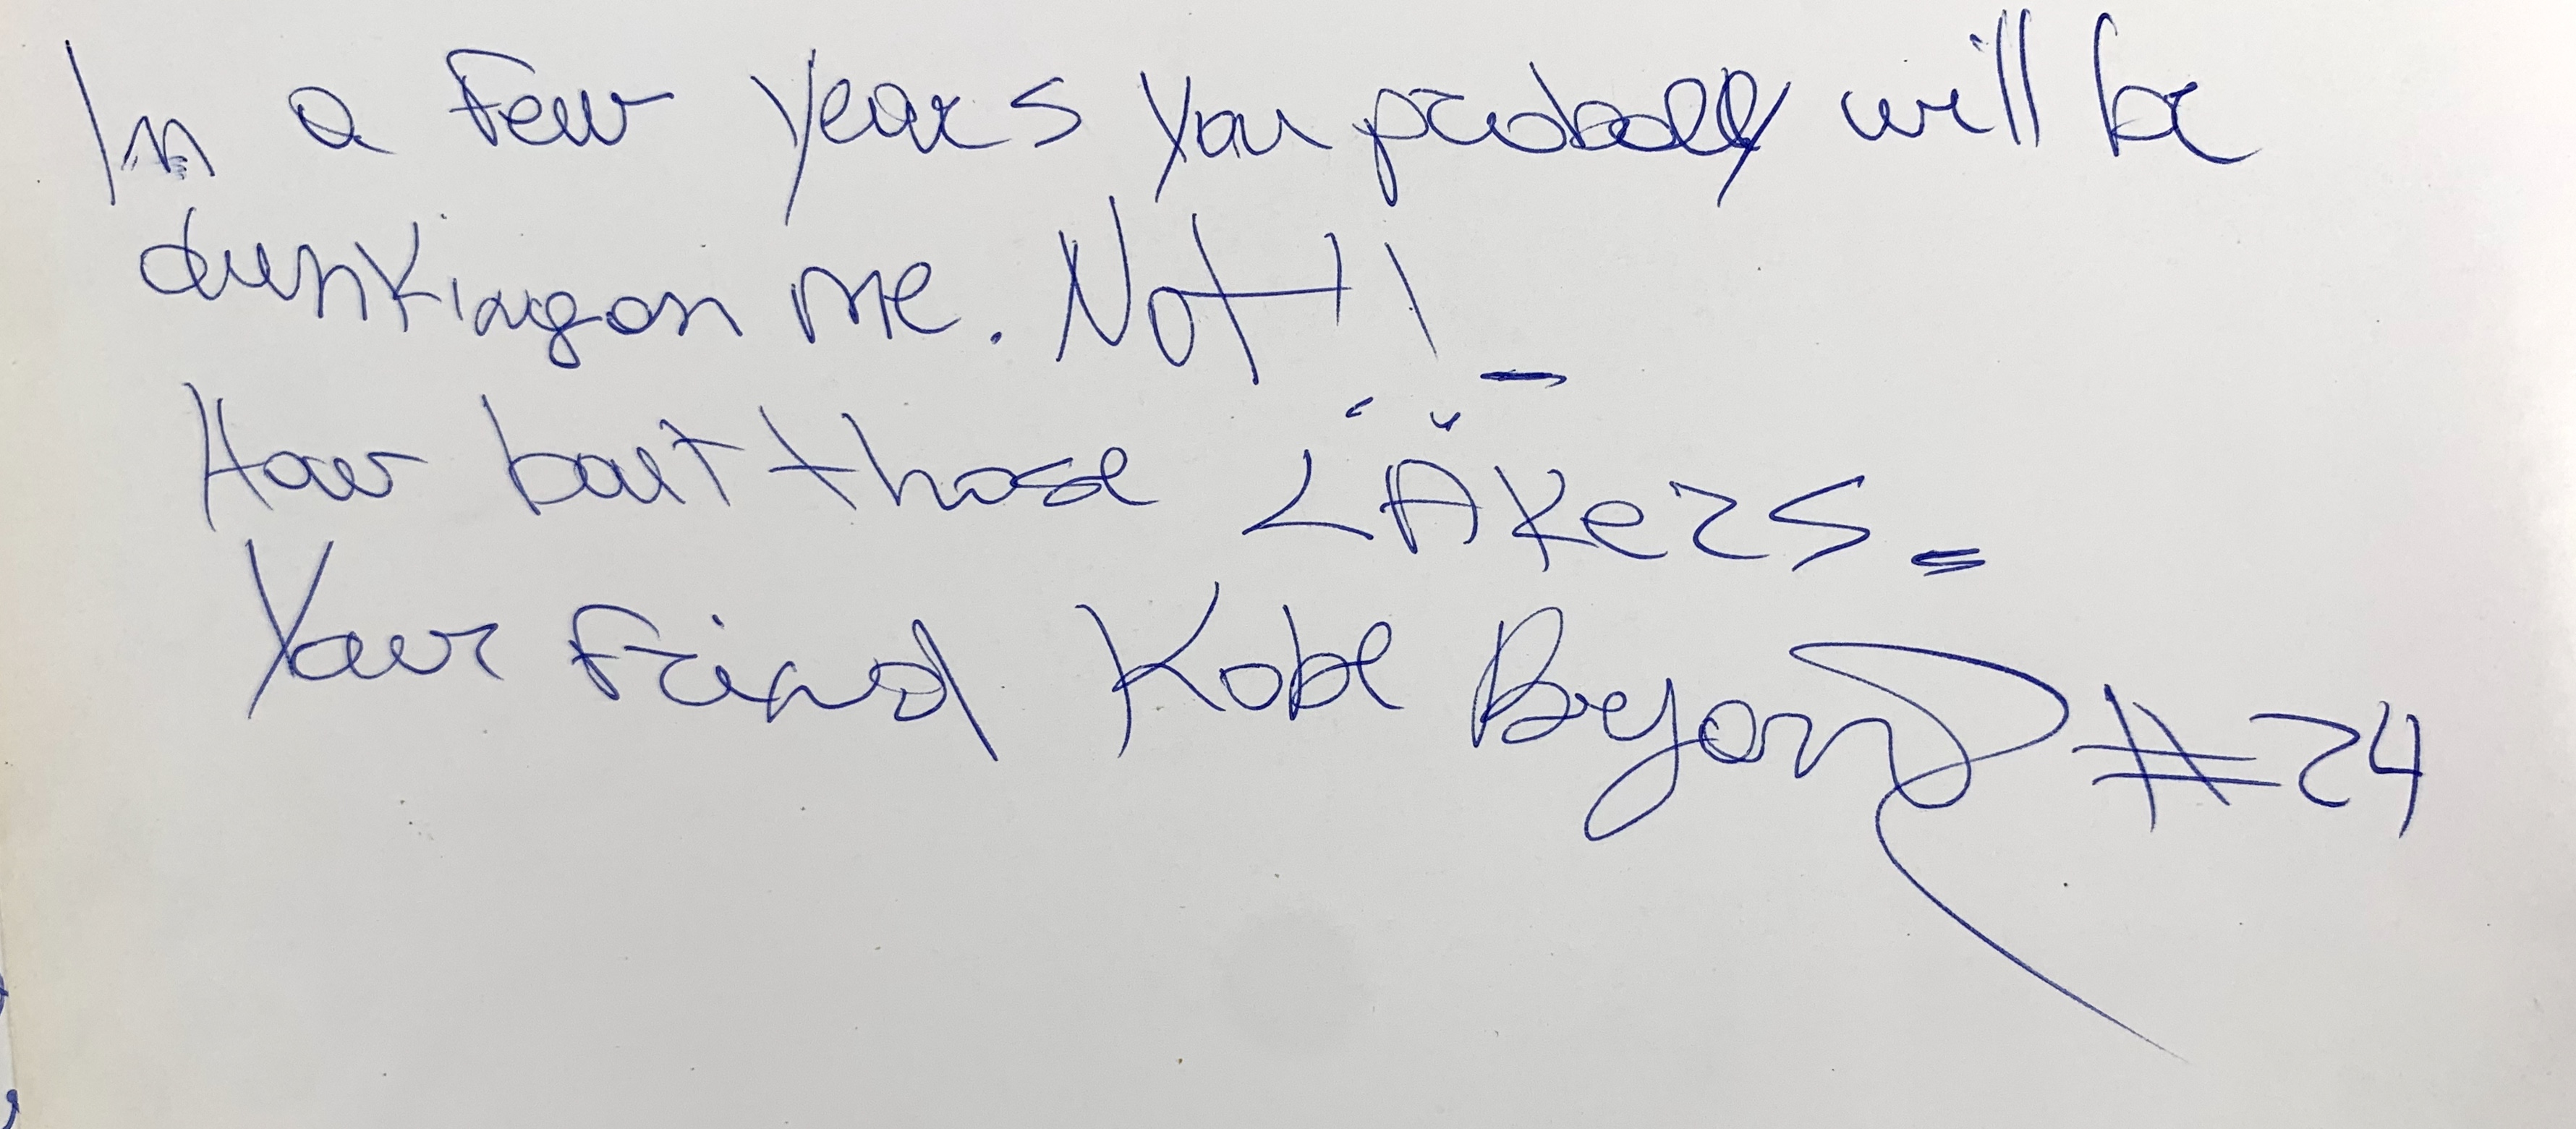 In a few years you probally will be
dunking on me. Not!!
How bout those LAKers.
Your Friend Kobe Bryant #24